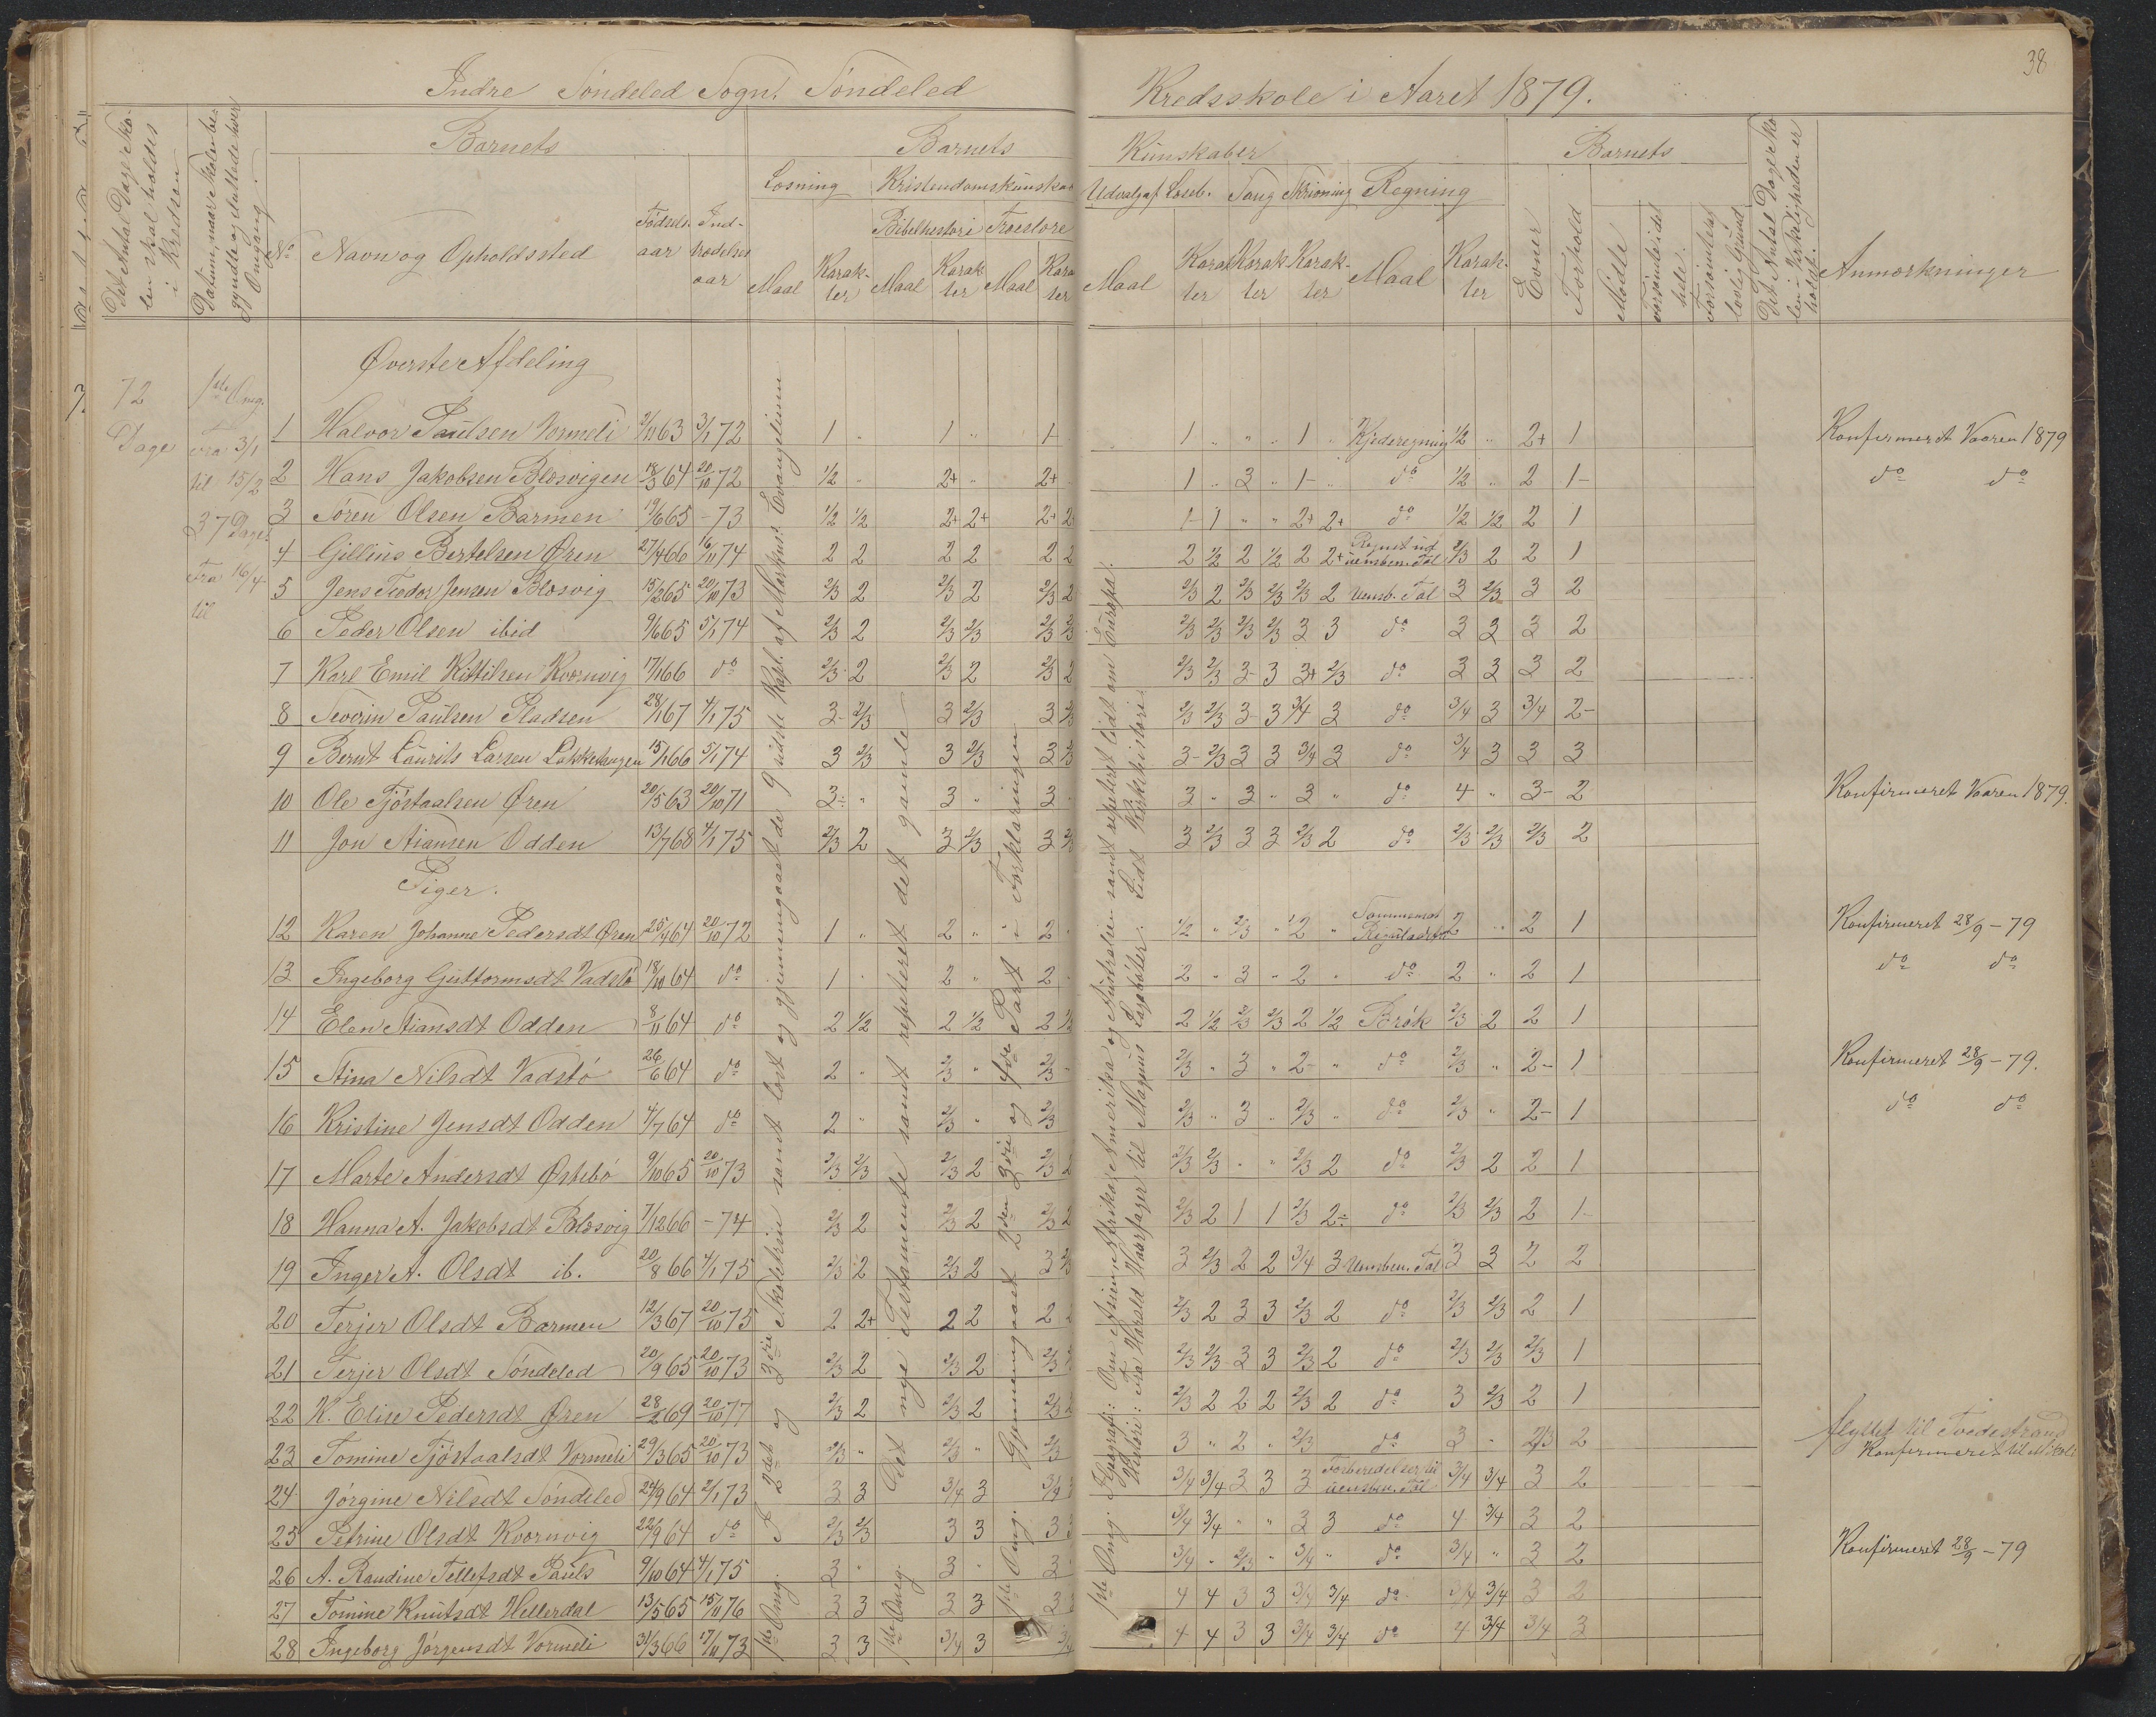 38
Indre Söndeled Sogn. Söndeled Kredsskole i Aaret 1879.
Det Antal Dage Skolen skal holdes i Kredsen
Datum, naar Skolen begyndte og sluttede hver Omgang.
Barnets
No Navn og Opholdssted
Födsels-aar
Indtrædelses aar
Barnets Kundskaber
Læsning
Maal Karakter
Kristendomskundskab
Bibelhistori
Maal Karakter
Troeslære
Maal Karakter
Udvalg af Læseb.
Maal Karakter
Sang Karakter
Skrivning Karakter
Regning
Maal Karakter
Barnets
Evner
Forhold
Mödte
forsömte i det hele.
Forsömte af lovlig Grund
Det Antal Dage Skolen i Virkeligheden er holdt.
Anmærkninger
7.
72 Dage
1ste Omg.
Fra 3/1
til 15/2
37 Dage
Fra 16/4
til
Överste Afdeling
1 Halvor Paulsen Vormeli 2/11 63 3/1 72 1 " 1 " 1- 1 " " " 1 " Kjederegning 1/2 " 2+ 1 Konfirmeret Vaaren 1879
2 Hans Jakobsen Blæsvigen 18/3 64 20/10 72 1/2 " 2+ " 2+ 1 " 3 " 1- " do 1/2 " 2 1- do do
3 Sören Olsen Barmen 19/6 65 - 73 1/2 1/2 2+ 2+ 2+ 2 1- 1 " " 2+ 2+ do 1/2 1/2 2 1
4 Gillius Bertelsen Ören 27/4 66 16/11 74 2 2 2 2 2 2 2 1/2 2 1/2 2 2+ uensben. Tal 2/3 2 2 1
5 Jens Fredor Jensen Blæsvig 15/2 65 20/10 73 2/3 2 2/3 2 2/3 2 2/3 2 2/3 2/3 2/3 2 Uensb. Tal 3 2/3 3 2
6 Peder Olsen ibid 9/6 65 5/1 74 2/3 2 2/3 2/3 2/3 2/3 2/3 2/3 2/3 2/3 3 3 do 3 3 3 2
7 Karl Emil Kittilsen Kvœrnvig 17/1 66 do 2/3 2 2/3 2 2/3 2 2/3 2/3 3- 3 3+ 2/3 do 3 3 3 2
8 Severin Paulsen Pladsen 28/1 67 4/1 75 3- 2/3 3 2/3 3 2/3 2/3 2/3 3- 3 3/4 3 do 3/4 3 3/4 2-
9 Bernt Laurits Larsen 15/1 66 5/1 74 3 2/3 3 2/3 3 2/3 3- 2/3 3 3 3/4 3 do 3/4 3 3 3
10 Ole Tjöstaalsen Ören 20/5 63 20/10 71 3- " 3 " 3 3 " 3 " 3 " do 4 " 3- 2 Konfirmeret Vaaren 1879.
11 Jon Aiansen Odden 13/7 68 4/1 75 2/3 2 3 2/3 3 2/3 3 2/3 3 3 2/3 2 do 2/3 2/3 2/3 2
Piger.
12 Karen Johanne Pedersdt Ören 25/4 64 20/10 72 1 " 2 " 2 1/2 " 2/3 " 2 " Sammensat Reguladetri 2 " 2 1 Konfirmeret 28/9 - 79
13 Ingeborg Guttormsdt Vadstö 18/10 64 do 1 " 2 " 2 2 " 3 " 2 " do 2 " 2 1 do do
14 Elen Aiansdt Odden 8/11 64 do 2 1/2 2 1/2 2 1/2 2 1/2 2/3 2/3 2 1/2 Brök 2/3 2 2 1
15 Stina Nilsdt Vadstö 26/6 64 do 2 " 2/3 " 2/3 2/3 " 3 " 2- " do 2/3 " 2- 1 Konfirmeret 28/9 - 79.
16 Kristine Jensdt Odden 4/7 64 do 2 " 2/3 " 2/3 2/3 " 3 " 2/3 " do 2/3 " 2- 1 do do
17 Marte Andersdt Östebö 9/10 65 20/10 73 2/3 2/3 2/3 2 2/3 2 2/3 2/3 " " 2/3 2 do 2/3 2 2 1
18 Hanna A. Jakobsdt Blæsvig 7/12 66 - 74 2/3 2 2/3 2 2/3 2 2/3 2 1 1 2/3 2- do 2/3 2/3 2 1-
19 Inger A. Olsdt ib. 20/8 66 4/1 75 2/3 2 2/3 2 3 2/3 3 2/3 2 2 3/4 3 Uensben. Tal 3 3 2 2
20 Terjer Olsdt Barmen 12/3 67 20/10 75 2 2+ 2 2 2 2 2/3 2 3 3 2/3 2 do 2/3 2/3 2 1
21 Terjer Olsdt Söndeled 20/9 65 20/10 73 2/3 2 2/3 2 2/3 2/3 2/3 3 3 2/3 2 do 2/3 2/3 2/3 1
22 K. Elise Pedersdt Ören 28/2 69 20/10 77 2/3 2 2/3 2 2/3 2 2/3 2 2 2 2/3 2 do 3 2/3 2 1
23 Tomine Tjöstaalsdt Vormeli 29/3 65 20/10 73 2/3 " 2/3 " 2/3 3 " 2 " 2/3 do 3 " 2/3 2 flyttet til Tvedestrand
Konfirmeret
24 Jörgine Nilsdt Söndeled 24/9 64 2/1 73 3 3 3/4 3 3/4 3/4 3/4 3 3 3 Forberedelser til uensben. Tal 3/4 3/4 3 2
25 Petrine Olsdt Kvœrnvig 22/9 64 do 2/3 2/3 3 3 3 3 3/4 3/4 " " 3 3 do 4 3/4 3 2
26 A. Randine Tellefsdt Pauls 9/10 64 4/1 75 3 " 3 " 3 3/4 " 2/3 " 3/4 " do 3/4 " 3 2 Konfirmeret 28/9 - 79
27 Tomine Knutsdt Hellerdal 13/5 65 15/11 76 3 3 3 3 3 4 4 3 3 3/4 3/4 do 3/4 3/4 3 2
28 Ingeborg Jörgensdt Vormeli 31/3 66 17/11 73 3 3 3/4 3 3/4 4 4 3 3 3/4 3/4 do 4 3/4 3/4 3
1ste Omg. I 2det og 3die Skoletrin samt læst og gjennemgaaet de 9 sidste Kapt. af Markus's Evangelium
1ste Omg. Det nye Testamente samt repeteret det gamle
1ste Omg. Gjennemgaaet 2den 3die og 4de Part i Forklaringen
1ste Omg. Geografi: Om Asien, Afrika, Amerika og Australien samt repeteret lidt om Europa.
Historie: Fra Harald Haarfager til Magnus Lagabøter. Lidt Kirkehistori.